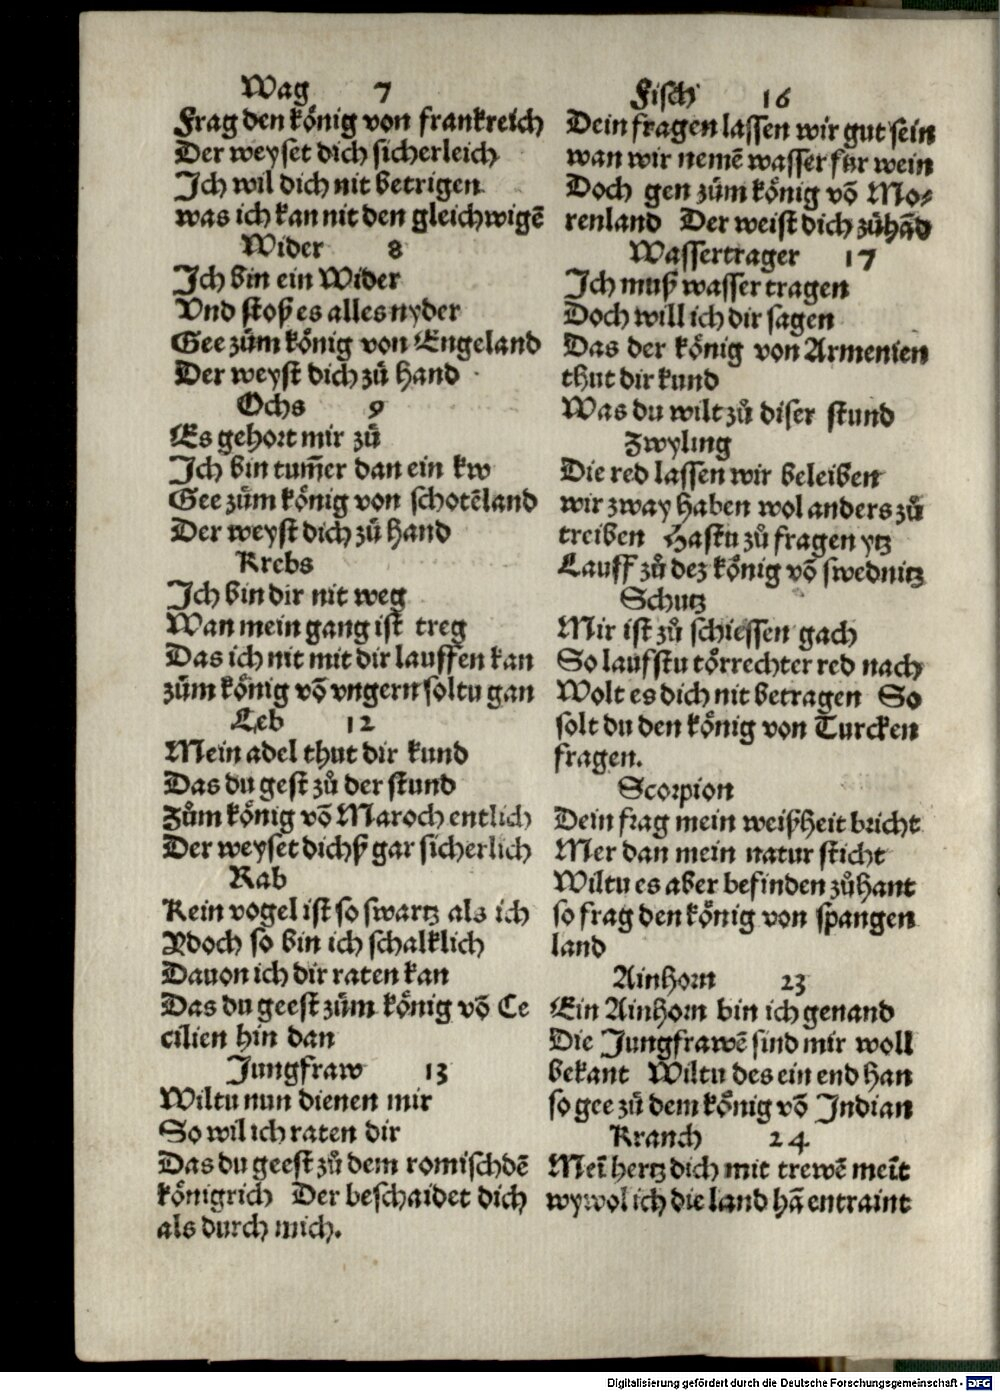 Wag 7
Frag den kőnig von frankreich
Der weyset dich sicherleich
Ich wil dich nit betrigen
was ich kan nit den gleichwigē
Wider 8
Ich bin ein Wider
Vnd stoß es alles nyder
Gee zům kőnig von Engeland
Der weyst dich zů hand
Ochs 9
Es gehort mir zů
Ich bin tum̄er dan ein kw
Gee zům kőnig von schotēland
Der weyst dich zů hand
Krebs
Ich bin dir nit weg
Wan mein gang ist treg
Das ich nit mit dir lauffen kan
zům kőnig vō vngern soltu gan
Leb 12
Mein adel thut dir kund
Das du gest zů der stund
Zům kőnig vō Maroch entlich
Der weyset dichß gar sicherlich
Rab
Kein vogel ist so swartz als ich
Ydoch so bin ich schalklich
Dauon ich dir raten kan
Das du geest zům kőnig vō Ce
cilien hin dan
Jungfraw 13
Wiltu nun dienen mir
So wil ich raten dir
Das du geest zů dem romischdē
kőnigrich Der beschaidet dich
als durch mich.
Fisch 16
Dein fragen lassen wir gut sein
wan wir nemē wasser fur wein
Doch gen zům kőnig vō Mo⸗
renland Der weist dich zůhād
Wassertrager 17
Ich muß wasser tragen
Doch will ich dir sagen
Das der kőnig von Armenien
thut dir kund
Was du wilt zů diser stund
Zwyling
Die red lassen wir beleiben
wir zway haben wol anders zů
treiben Hastu zů fragen ytz
Lauff zů dez kőnig vō swednitz
Schutz
Mir ist zů schiessen gach
So laufstu tőrrechter red nach
Wolt es dich nit betragen So
solt du den kőnig von Turcken
fragen.
Scorpion
Dein frag mein weißheit bricht
Mer dan mein natur sticht
Wiltu es aber befinden zůhant
so frag den kőnig von spangen
land
Ainhorn 23
Ein Ainhorn bin ich genand
Die Jungfrawē sind mir woll
bekant Wiltu des ein end han
so gee zů dem kőnig vō Indian
Kranch 24
Meī hertz dich mit trewē meīt
wywol ich die land hā entraint
Digitalisierung gefördert durch die Deutsche Forschungsgemeinschaft - DFG